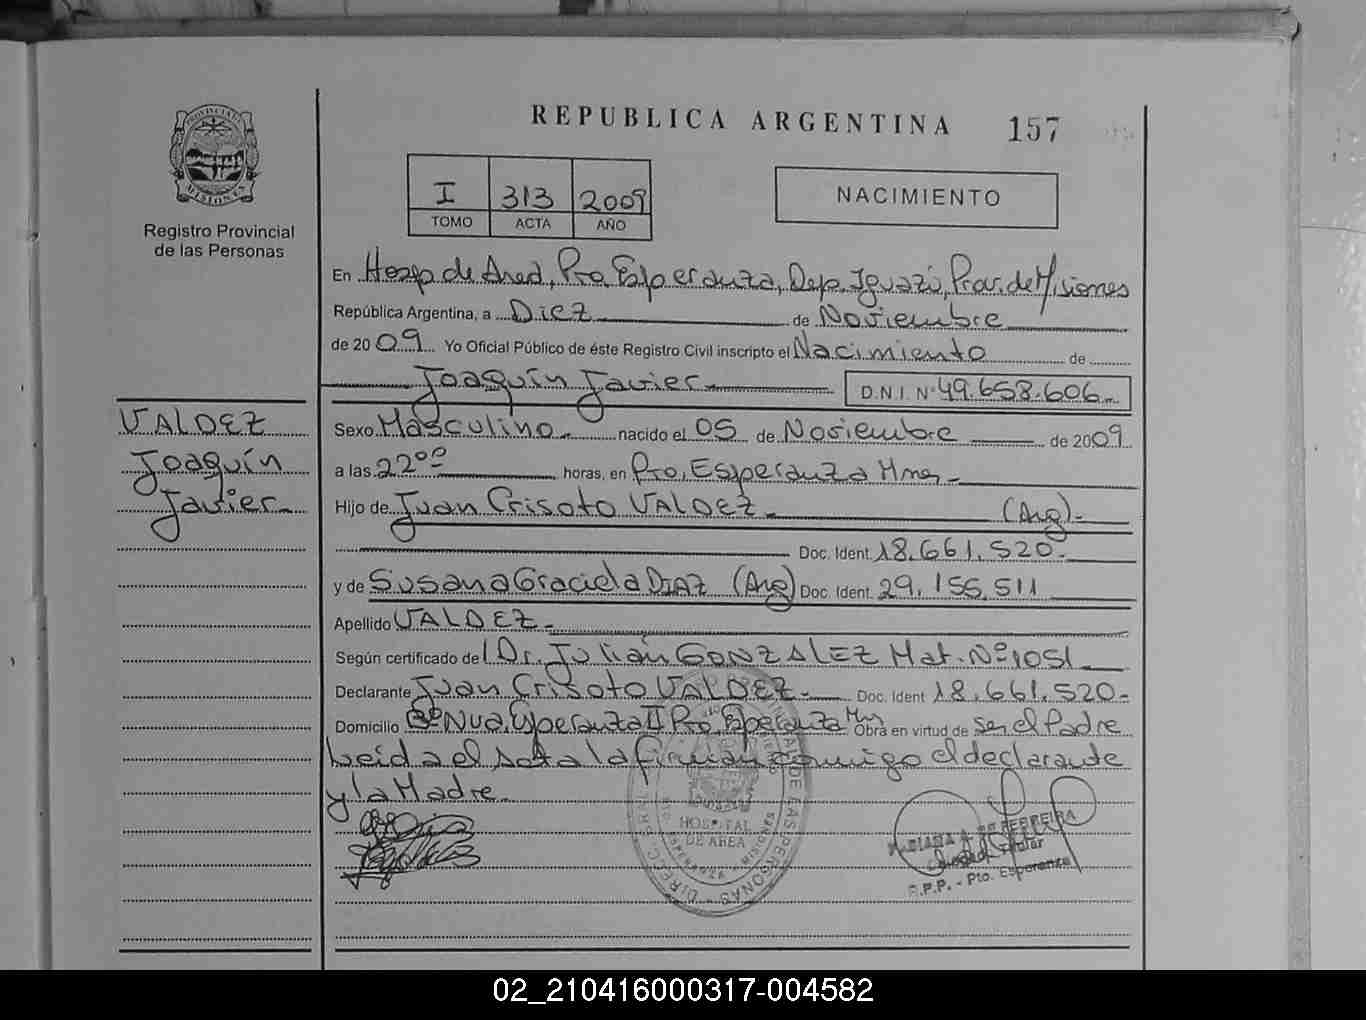 REPUBLICA ARGENTINA 157
PROVINCIA DE
MISIONES
Registro Provincial
de las Personas
I 313 2009
TOMO ACTA AÑO
NACIMIENTO
En Hosp de Area, Pto Esperanza, Dep. Iguazú, Prov. de Misiones
República Argentina, a Diez de Noviembre
de 2009 Yo Oficial Público de éste Registro Civil inscripto el Nacimiento de
Joaquín Javier D.N.I. Nº 49.658.606
VALDEZ
Joaquín
Javier
Sexo Masculino nacido el 05 de Noviembre de 2009
a las 22⁰⁰ horas, en Pto, Esperanza Mnes
Hijo de Juan Crisoto VALDEZ (Arg)
Doc. Ident. 18.661.520
y de Susana Graciela DIAZ (Arg) Doc. Ident. 29.155.511
Apellido VALDEZ
Según certificado de Dr. Julián GONZALEZ Mat. Nº 1051
Declarante Juan Crisoto VALDEZ Doc. Ident 18.661.520
Domicilio Bº Nva. Esperanza II Pto Esperanza Mnes Obra en virtud de ser el Padre
Leida el acta la firman conmigo el declarante
y la Madre
HOSPITAL
DE AREA
DE FERREIRA
Titular
R.P.P. - Pto. Esperanza
02_210416000317-004582